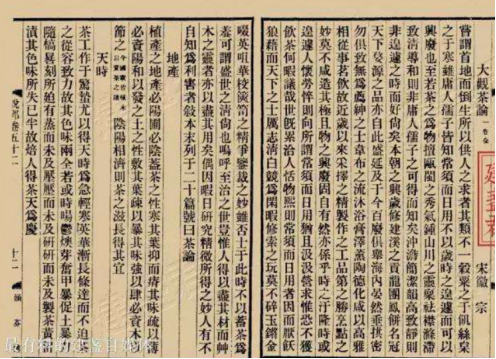 大觀茶論一卷全
宋徽宗
嘗謂首地而倒生所以供人之求者其類不一穀粟之于飢絲枲
之于寒雖庸人孺子皆知常須而日用不以歲時之遑遽而可以
興廢也至若茶之為物擅甌閩之秀氣鍾山川之靈稟袪襟滌滯
致清導和則非庸人孺子之可得而知矣沖澹簡潔韻高致靜則
非遑遽之時而好尚矣本朝之興歲修建溪之貢龍團鳳餅名冠
天下婺源之品亦自此盛延及于今百廢俱舉海內晏然垂拱密
勿俱致無為薦紳之士韋布之流沐浴膏澤薰陶德化咸以高雅
相從事茗飲故近歲以來采擇之精製作之工品第之勝烹點之
妙莫不咸造其極且物之興廢固自有然亦係乎時之汙隆時或
遑遽人懷勞悴則向所謂常須而日用猶且汲汲營求惟恐不獲
飲茶何暇議哉世既累洽人恬物熙則常須而日用者因而厭飫
狼藉而天下之士厲志清白競為閒暇修索之玩莫不碎玉鏘金
啜英咀華校篋笥之精爭鑒裁之妙雖否士于此時不以蓄茶為
羞可謂盛世之清尚也嗚呼至治之世豈惟人得以盡其材而草
木之靈者亦以盡其用矣偶因暇日研究精微所得之妙人有不
自知為利害者敘本末列于二十篇號曰茶論
地產
植產之地崖必陽圃必陰蓋茶之性寒其葉抑而瘠其味疏以薄
必資陽和以發之土之性敷其葉疎以暴其味強以肆必資木以
節之
陰陽相濟則茶之滋長得其宜
天時
茶工作于驚蟄尤以得天時為急輕寒英華漸長條達而不迫茶
之從容致力故其色味兩全若或時暘鬱燠芽奮甲暴促工暴力
隨槁晷刻所迫有蒸而未及壓壓而未及研研而未及製茶黃留
漬其色味所失已半故焙人得茶天為慶
說郛卷五十二
十二
涵芬